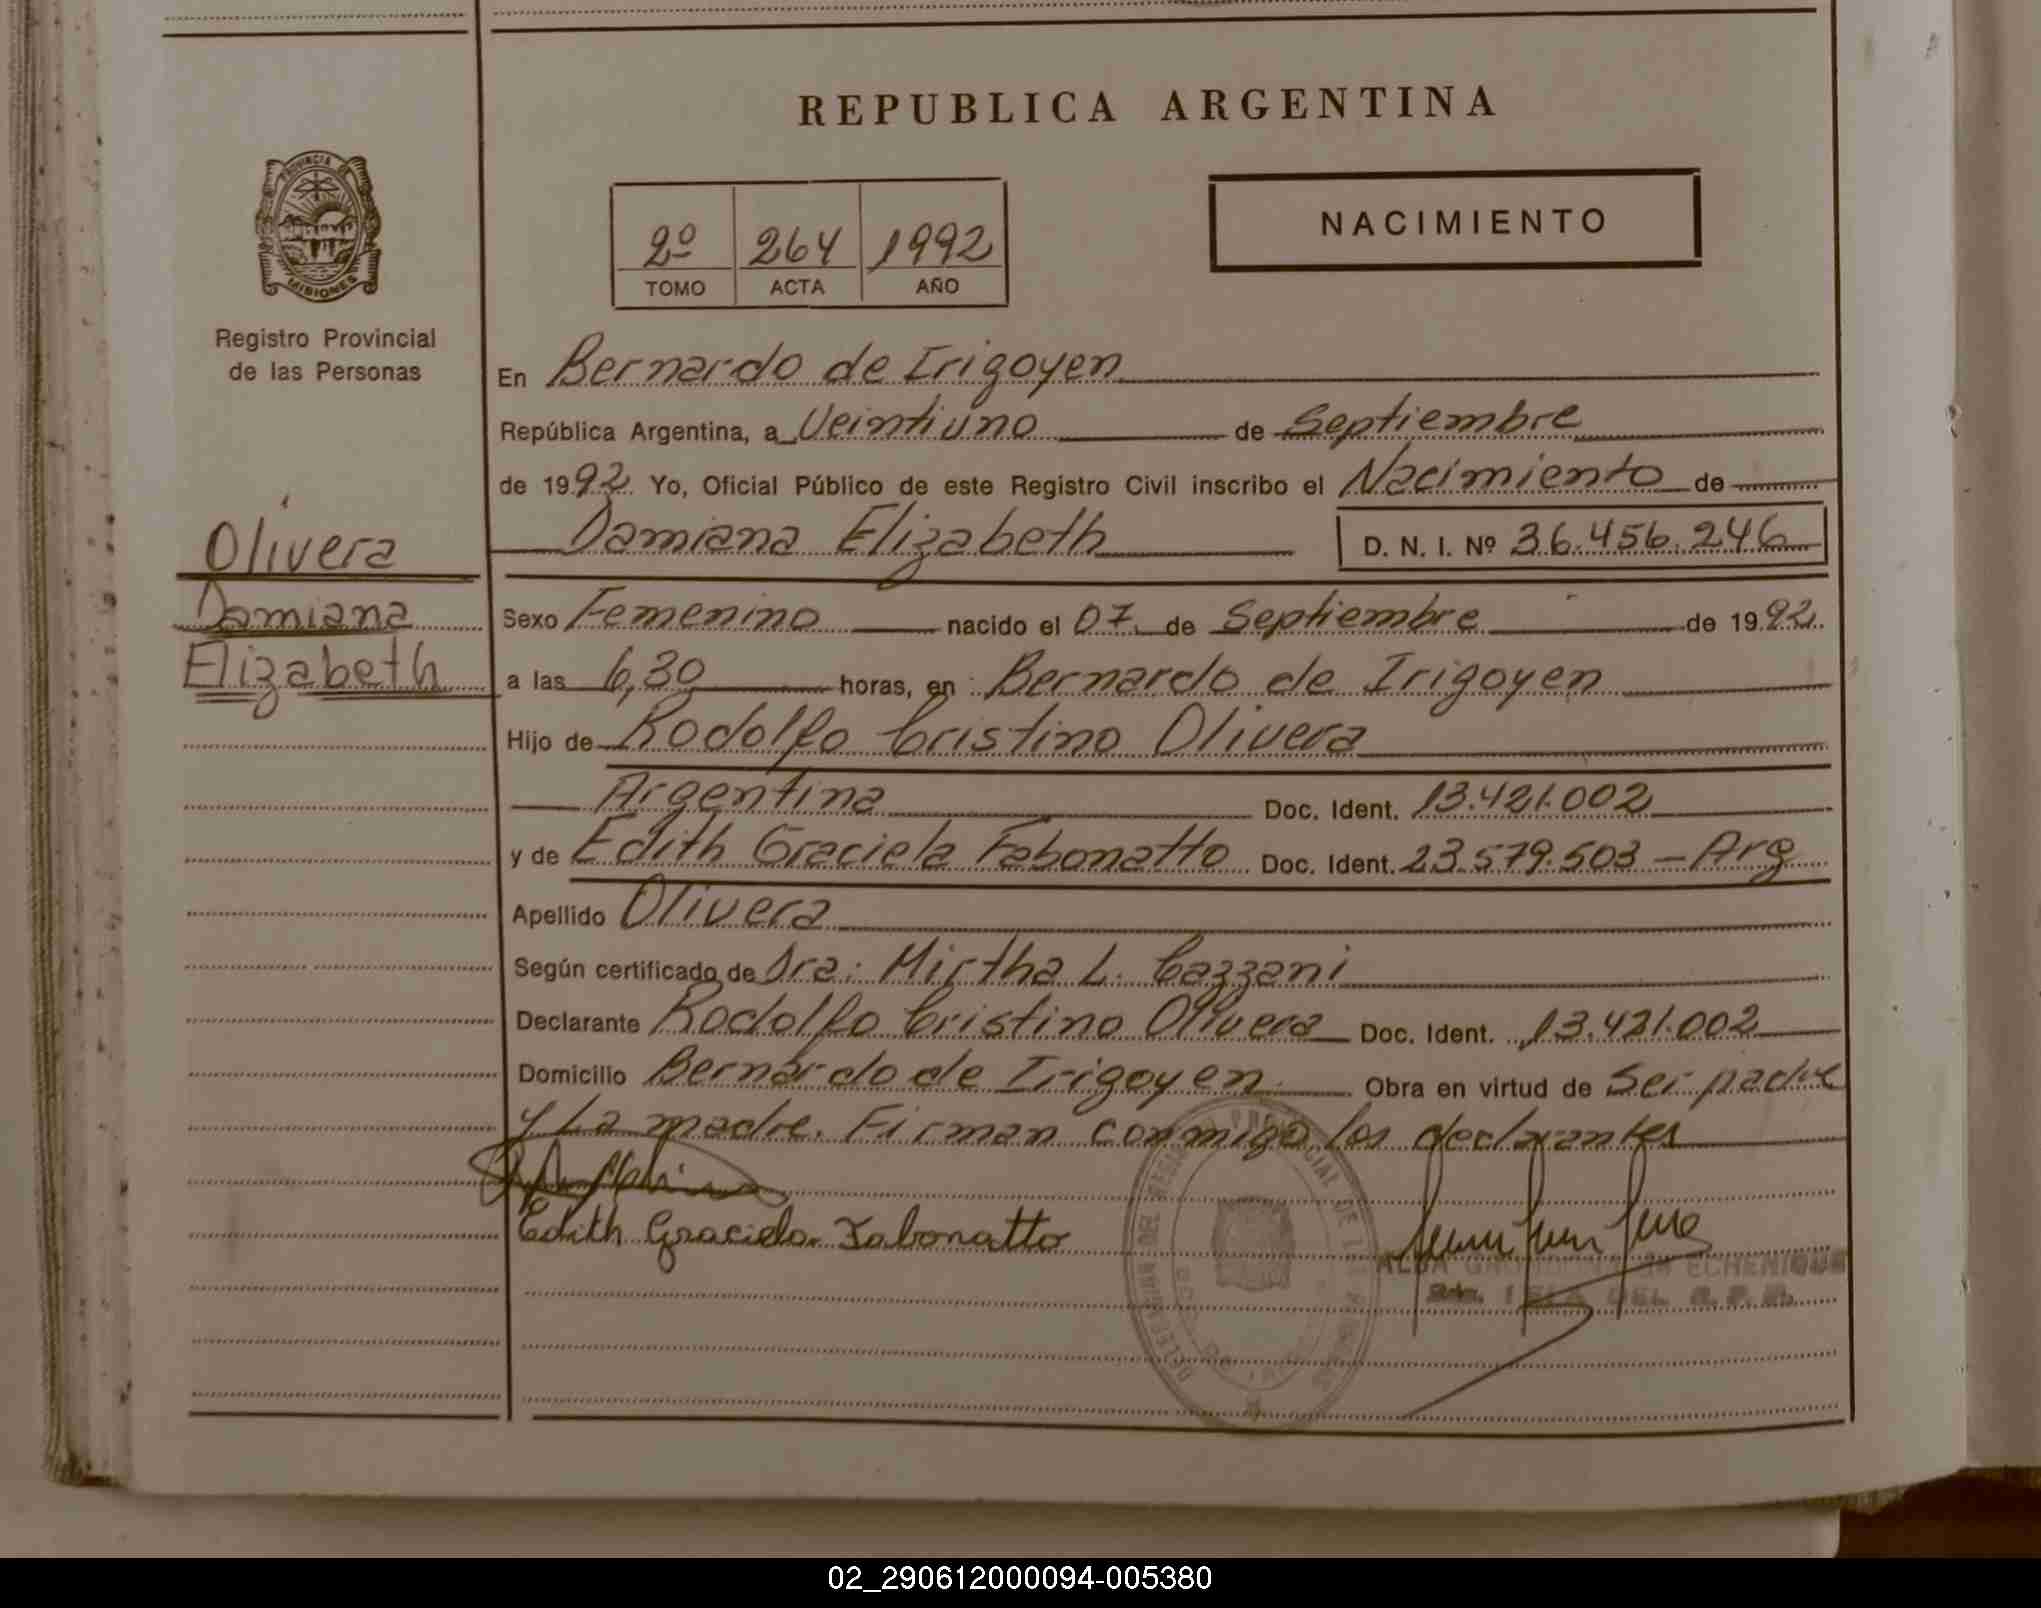 REPUBLICA ARGENTINA
PROVINCIA DE
MISIONES
2º 264 1992
TOMO ACTA AÑO
NACIMIENTO
Registro Provincial
de las Personas
En Bernardo de Irigoyen
República Argentina, a Veintiuno de Septiembre
de 1992 Yo, Oficial Público de este Registro Civil inscribo el Nacimiento de
Olivera
Damiana Elizabeth D. N. I. Nº 36.456.246
Damiana
Sexo Femenino nacido el 07 de Septiembre de 1992
Elizabeth
a las 6,30 horas, en Bernardo de Irigoyen
Hijo de Rodolfo Cristino Olivera
Argentina Doc. Ident. 13.421.002
y de Edith Graciela Fabonatto Doc. Ident. 23.579.503 - Arg
Apellido Olivera
Según certificado de Dra: Mirtha L. Cazzani
Declarante Rodolfo Cristino Olivera Doc. Ident. 13.421.002
Domicilio Bernardo de Irigoyen Obra en virtud de Ser padre
y La madre. Firman conmigo los declarantes
Edith Graciela Fabonatto
ECHENIQUE
02_290612000094-005380